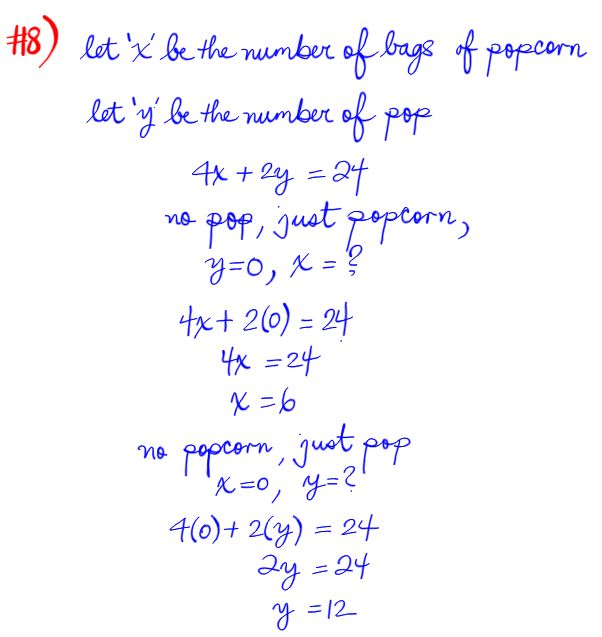 #8) let 'x' be the number of bags of popcorn
let 'y' be the number of pop
4x + 2y = 24
no pop, just popcorn,
y=0, x = ?
4x + 2(0) = 24
4x = 24
x = 6
no popcorn, just pop
x=0, y=?
4(0) + 2(y) = 24
2y = 24
y = 12